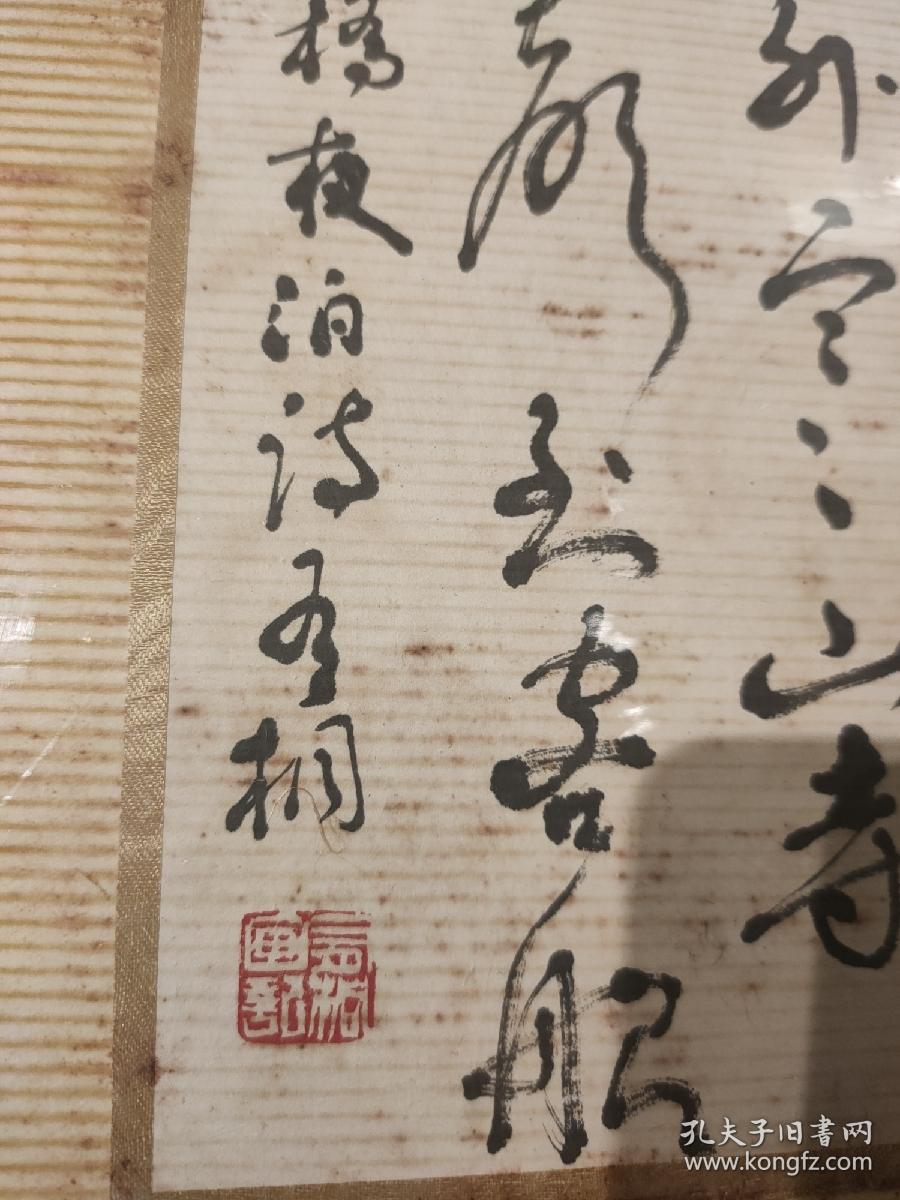 外寒山寺
声到客船
橋夜泊诗
孔夫子旧書网
www.kongfz.com